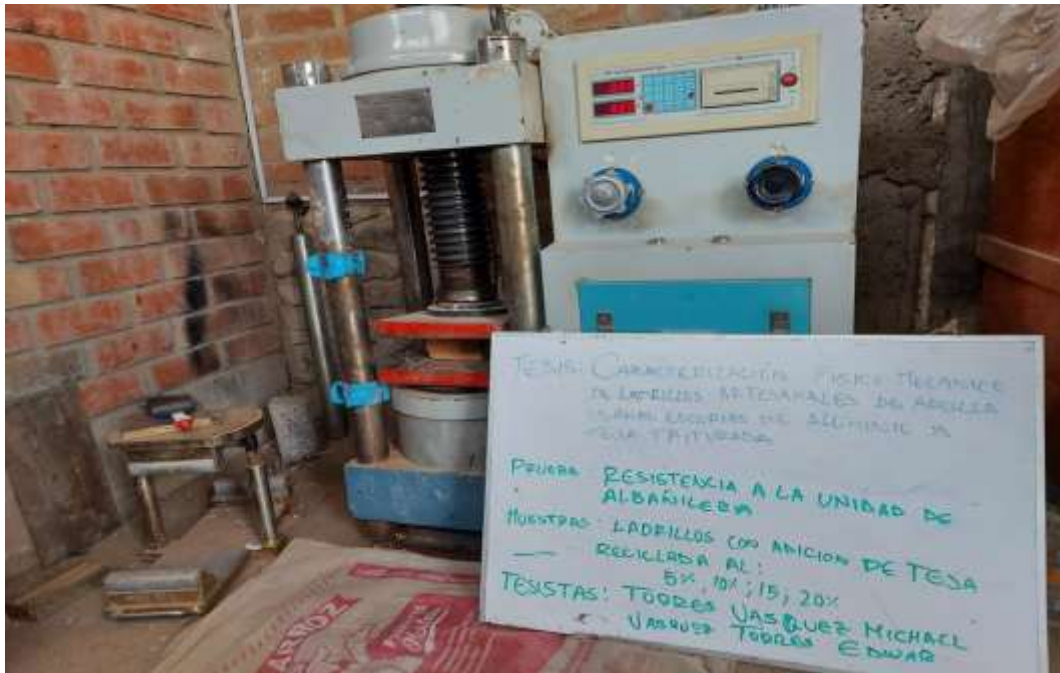 TESIS: CARACTERIZACIÓN FISICO MECANICE
DE LADRILLOS ARTESANALES DE ARCILLA
ESCORIAS DE ALUMINIO
TEJA TRITURADA
PRUEBA RESISTENCIA A LA UNIDAD DE
ALBAÑILERIA
MUESTRAS: LADRILLOS CON ADICION DE TEJA
RECICLADA AL:
5%, 10%; 15; 20%
TESISTAS: TORRES VASQUEZ MICHAEL
- VASQUEZ TORRES EDWAR
ARROZ